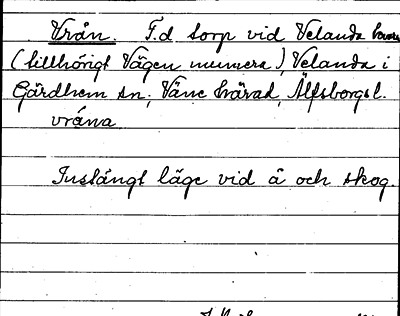 Vrån. F.d torp vid Velanda
(tillhörigt Vägen numera), Velanda i
Gärdhem sn, Väne härad, Älfsborgs l.
vrǻna
Instängt läge vid å och skog.